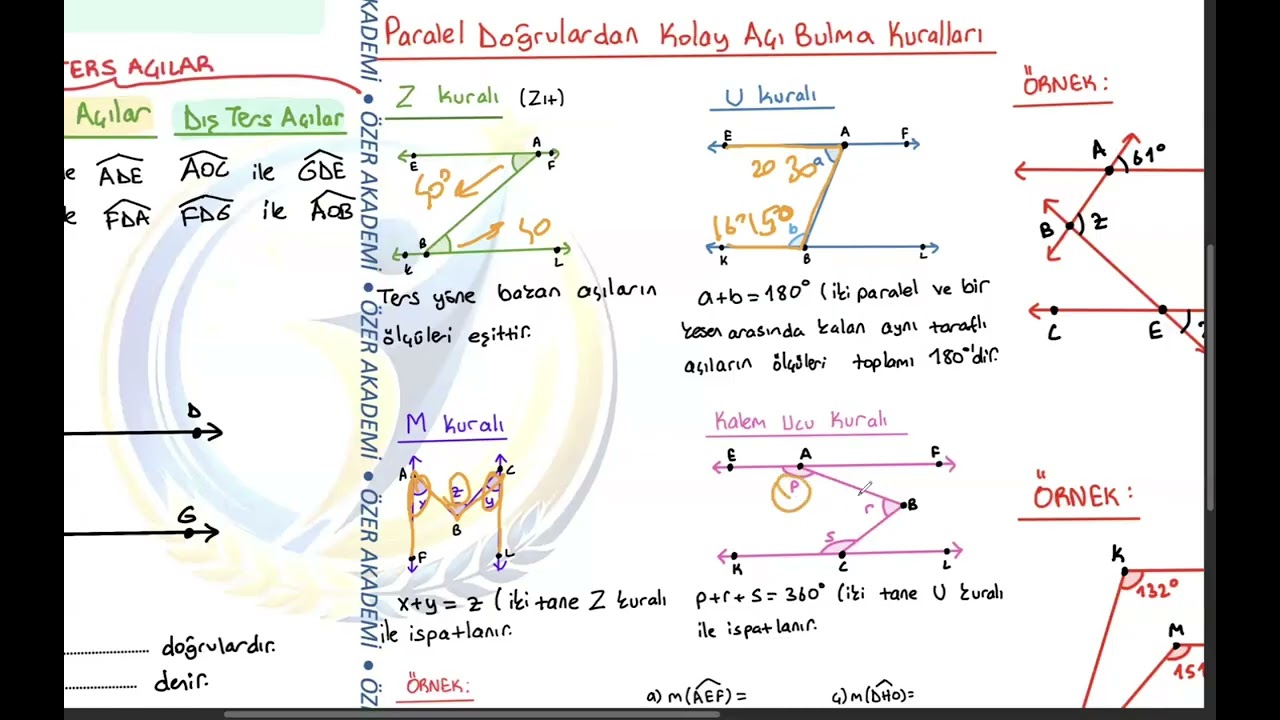 Paralel Doğrulardan Kolay Açı Bulma Kuralları
TERS AÇILAR
Açılar
Dış Ters Açılar
ADE
AOC ile GDE
FDA
FDG ile AOB
D
G
doğrulardır.
denir.
ÖZER AKADEMİ • ÖZER AKADEMİ • ÖZER AKADEMİ
Z kuralı (Zıt)
E
A
F
40°
B
40
K
L
Ters yöne bakan açıların
ölçüleri eşittir.
U kuralı
E
A
F
20 30
a
b
K
B
L
a+b=180° (iki paralel ve bir
kesen arasında kalan aynı taraflı
açıların ölçüleri toplamı 180°'dir.
M kuralı
A
C
x
z
y
B
F
L
x+y=z (iki tane Z kuralı
ile ispatlanır.
Kalem Ucu Kuralı
E
A
F
p
r
B
s
K
C
L
p+r+s=360° (iki tane U kuralı
ile ispatlanır.
ÖRNEK:
a) m(AEF)=
ç) m(DHO)=
ÖRNEK:
A
61°
B
z
C
E
ÖRNEK:
K
132°
M
151